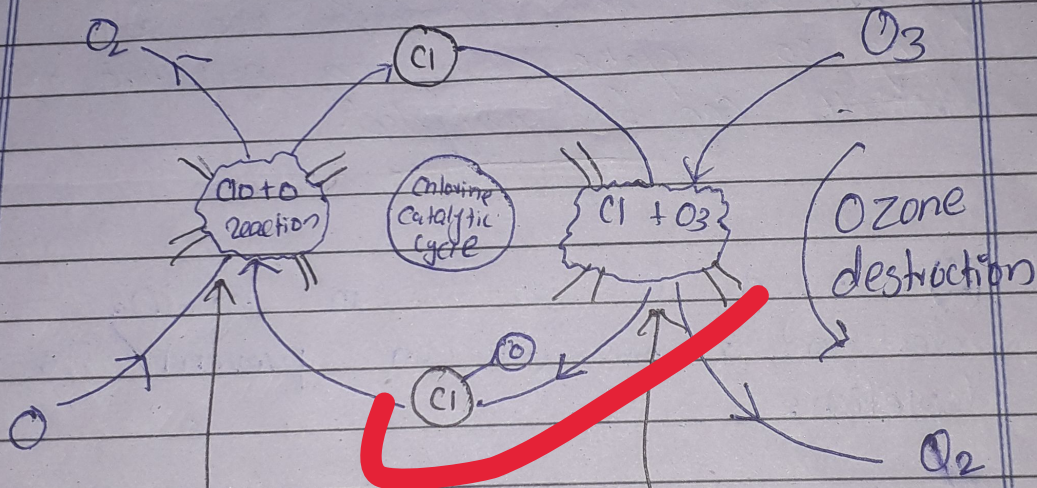 O2
Cl
O3
ClO + O
reaction
Chlorine
Catalytic
Cycle
Cl + O3
Ozone
destruction
O
Cl
O
O2